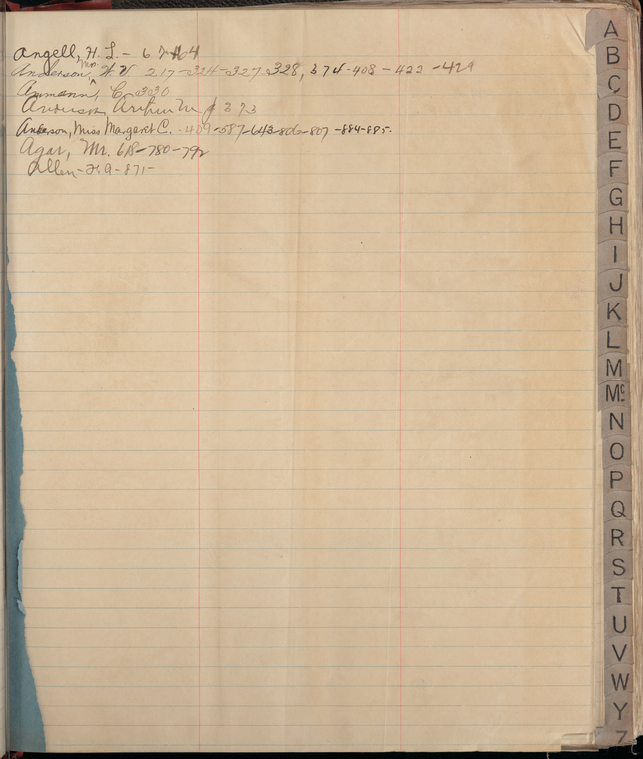 Angell, H. L. - 6
Anderson, Mrs. 217-324-327, 328, 374-408-422-424
Aumann, C. 330
Anderson, Arthur M 373
Anderson, Miss Margaret C. -409-587-643-806-807-884-885.
Agar, Mr. 618-780-792
Allen-H.A-871-
A
B
C
D
E
F
G
H
I
J
K
L
M
Mc
N
O
P
Q
R
S
T
U
V
W
Y
Z